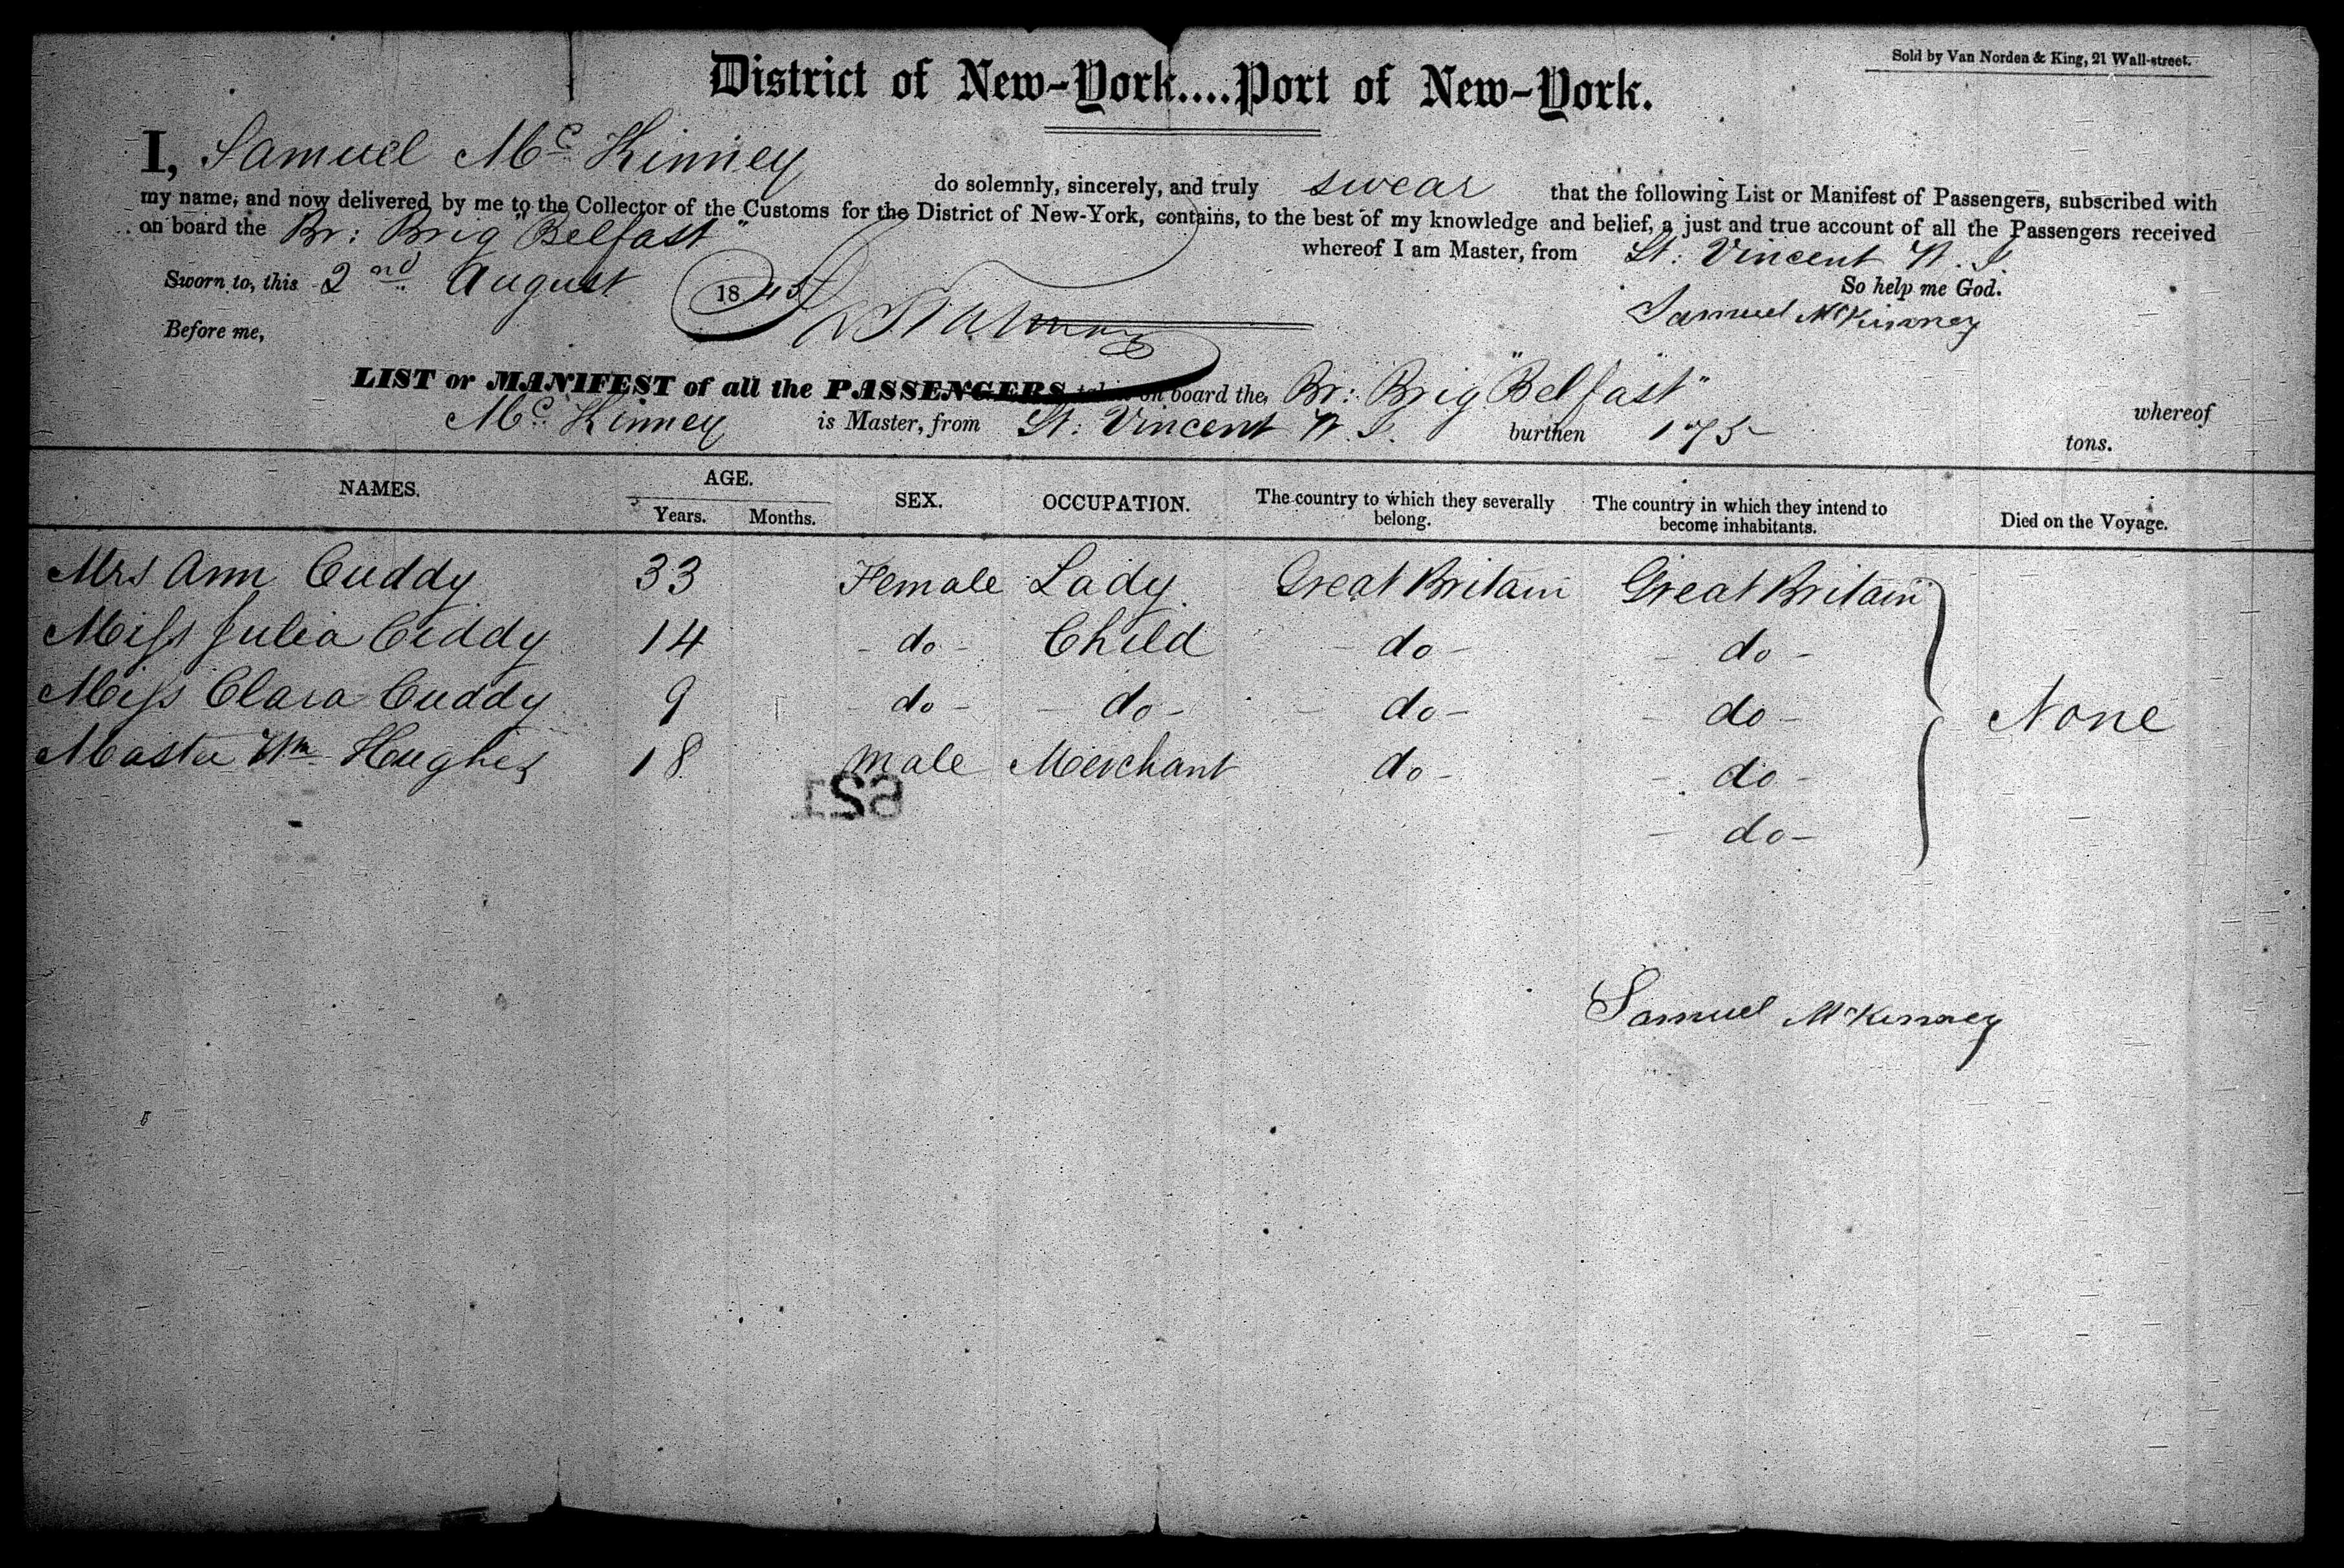 Sold by Van Norden & King, 21 Wall-street.
District of New-York....Port of New-York.
I, Samuel Mc Kinney do solemnly, sincerely, and truly swear that the following List or Manifest of Passengers, subscribed with
my name, and now delivered by me to the Collector of the Customs for the District of New-York, contains, to the best of my knowledge and belief, a just and true account of all the Passengers received
on board the Br: Brig "Belfast" whereof I am Master, from St: Vincent W. I.
Sworn to, this 2nd August 1845 So help me God.
Before me, Samuel McKinney
LIST or MANIFEST of all the PASSENGERS taken on board the, Br: Brig "Belfast" whereof
Mc. Kinney is Master, from St: Vincent W. I. burthen 175 tons.
NAMES. AGE. SEX. OCCUPATION. The country to which they severally belong. The country in which they intend to become inhabitants. Died on the Voyage.
Years. Months.
Mrs Ann Cuddy 33 Female Lady. Great Britain Great Britain
Miss Julia Cuddy 14 - do - Child - do - - do -
Miss Clara Cuddy 9 - do - - do - - do - - do - None
Master Wm Hughes 18 Male Merchant do - - do -
- do -
621
Samuel McKinney